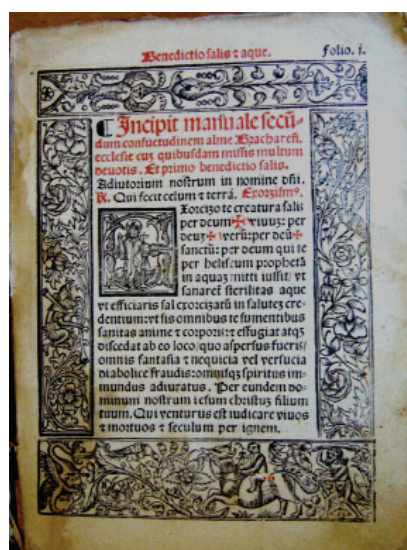 Benedictio salis ⁊ aque. Folio. j.
¶ Incipit manuale secū-
dum consuetudinem alme Bracharen̄.
ecclesie cuz quibusdam missis multum
deuotis. Et primo benedictio salis.
Adiutorium nostrum in nomine dn̄i.
℟. Qui fecit celum ⁊ terrā. Exorzism⁹.
Exorcizo te creatura salis
per deum ✠ viuuz: per
deuz ✠ verū: per deū ✠
sanctū: per deum qui te
per heliseum prophetā
in aquaz mitti iussit/ vt
sanaret̄ sterilitas aque
vt efficiaris sal exorcizatū in salutez cre-
dentium: vt sis omnibus te sumentibus
sanitas anime ⁊ corporis: ⁊ effugiat atqz
discedat ab eo loco/ quo aspersus fueris/
omnis fantasia ⁊ nequicia vel versucia
diabolice fraudis: omnisqz spiritus im-
mundus adiuratus. Per eundem do-
minum nostrum iesum christuz filium
tuum. Qui venturus est iudicare viuos
⁊ mortuos ⁊ seculum per ignem.